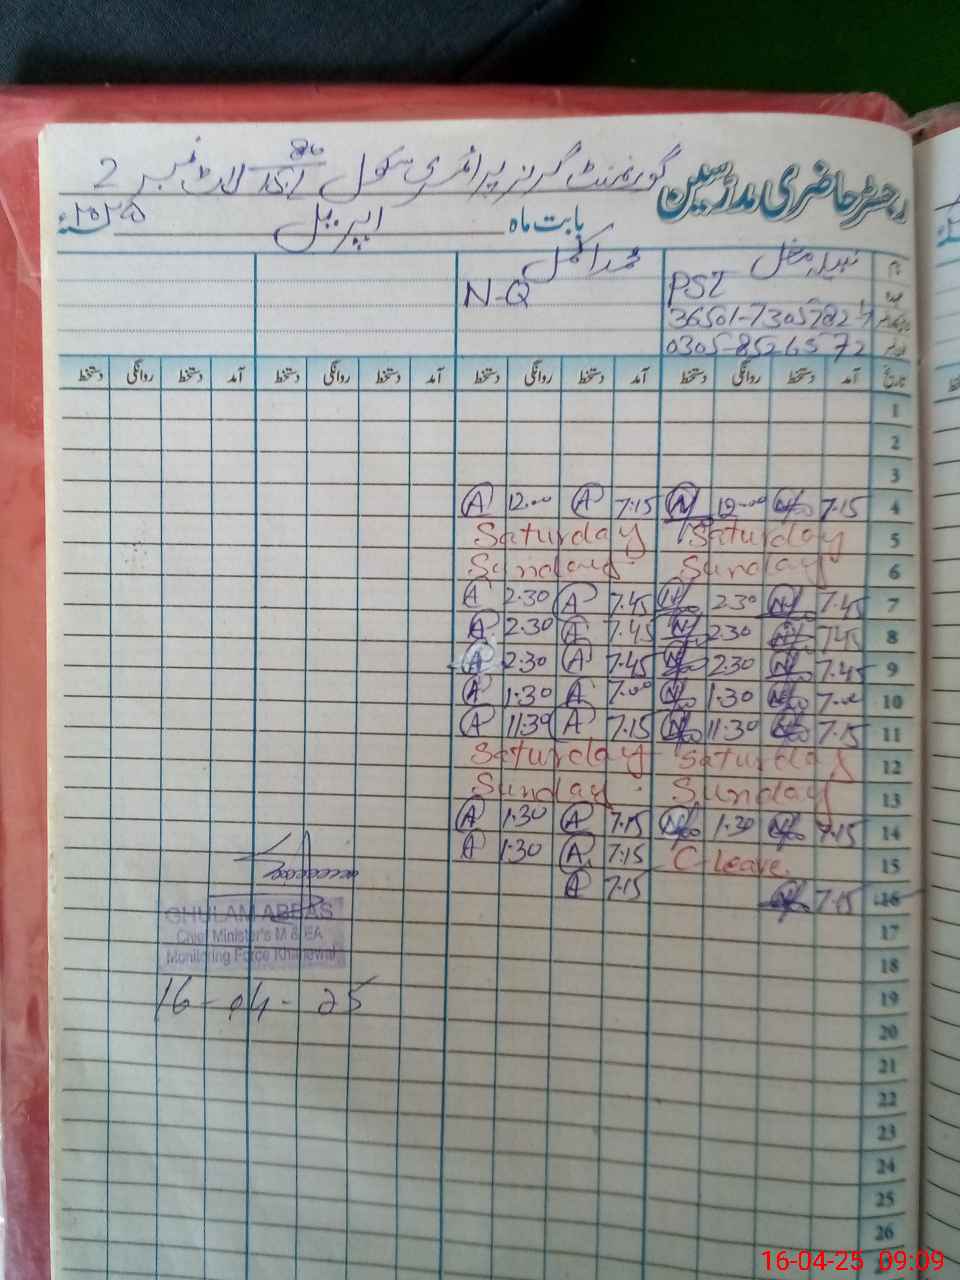 رجسٹر حاضری مدرسین گورنمنٹ گرلز پرائمری سکول لاٹ نمبر 2
بابت ماہ اپریل ۲۰۲۵ء
نام نبیلہ محمد اکمل
عہدہ PST N-Q
36501-7305782
0305-8526572
تاریخ آمد دستخط روانگی دستخط آمد دستخط روانگی دستخط آمد دستخط روانگی دستخط آمد دستخط روانگی دستخط
1
2
3
4 7.15 12.00 7.15 A 12.00 A
5 Saturday Saturday
6 Sunday Sunday
7 7.45 2.30 7.45 A 2.30 A
8 7.45 2.30 7.45 A 2.30 A
9 7.45 2.30 7.45 A 2.30 A
10 7.00 1.30 7.00 A 1.30 A
11 7.15 11.30 7.15 A 11.30 A
12 Saturday Saturday
13 Sunday Sunday
14 7.15 1.30 7.15 A 1.30 A
15 C-leave. 7.15 A 1.30 A
16 7.15 7.15 A
17
18
19
20
21
22
23
24
25
26
GHULAM ABBAS
Chief Minister's M & EA
Monitoring Force Khanewal
16-04-25
16-04-25 09:09